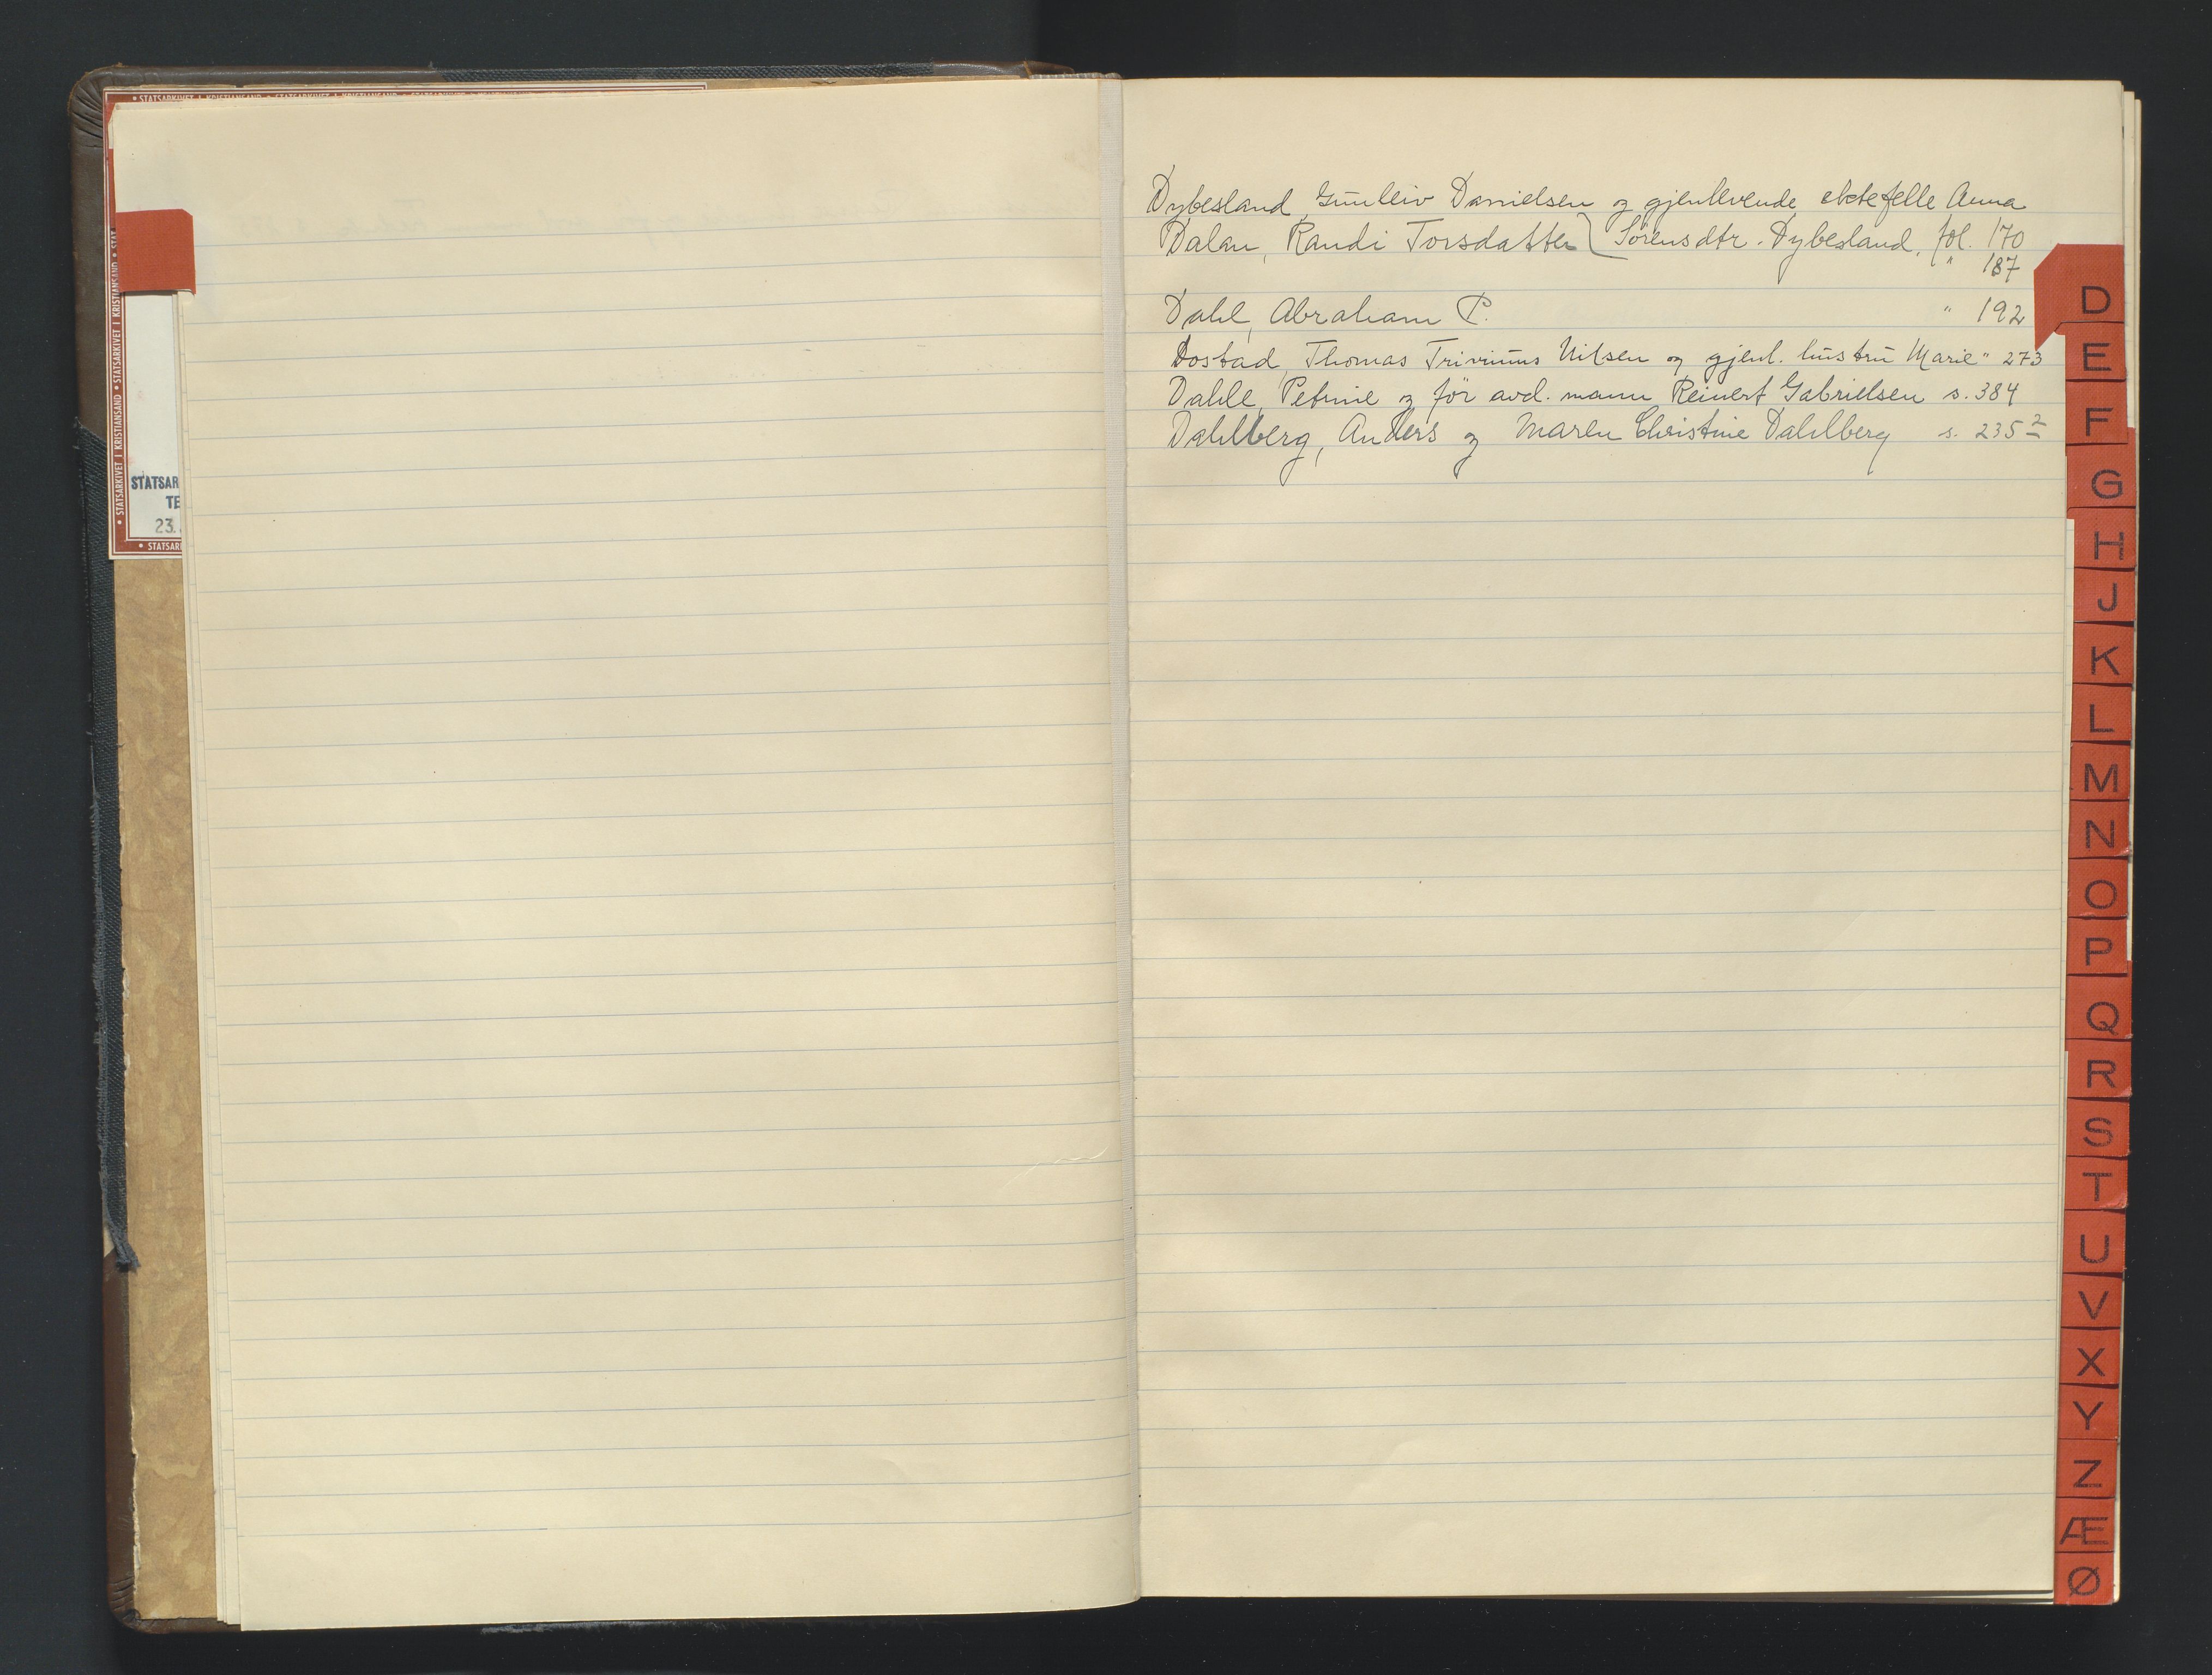 • STATSARKIVET I KRISTIANSAND • STATSARKIVET I KRISTIANSAND • STATSARKIVET I KRISTIANSAND
• STATSARKIVET I KRISTIANSAND • STATSARKIVET I KRISTIANSAND • STAT
STATSAR
TE
23.
• STATSAR
Dybesland, Gunleiv Danielsen og gjenlevende ektefelle Anna
Dalan, Randi Torsdatter } Sørensdtr. Dybesland, fol. 170
" 187
Dahl, Abraham P. " 192
Dostad, Thomas Trivinus Nilsen og gjenl. hustru Marie " 273
Dahle, Petrine og før avd. mann Reinert Gabrielsen s. 384
Dahlberg, Anders og Maren Christine Dahlberg s. 235 2
D
E
F
G
H
J
K
L
M
N
O
P
Q
R
S
T
U
V
X
Y
Z
Æ
Ø